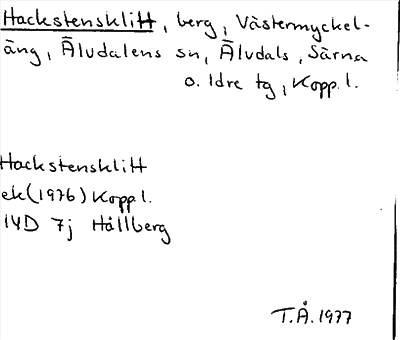 Hackstensklitt, berg, Västermyckel-
äng, Älvdalens sn, Älvdals, Särna
o. Idre tg, Kopp.l.
Hackstensklitt
ek(1976) Kopp l.
14D 7j Hållberg
T.Å.1977